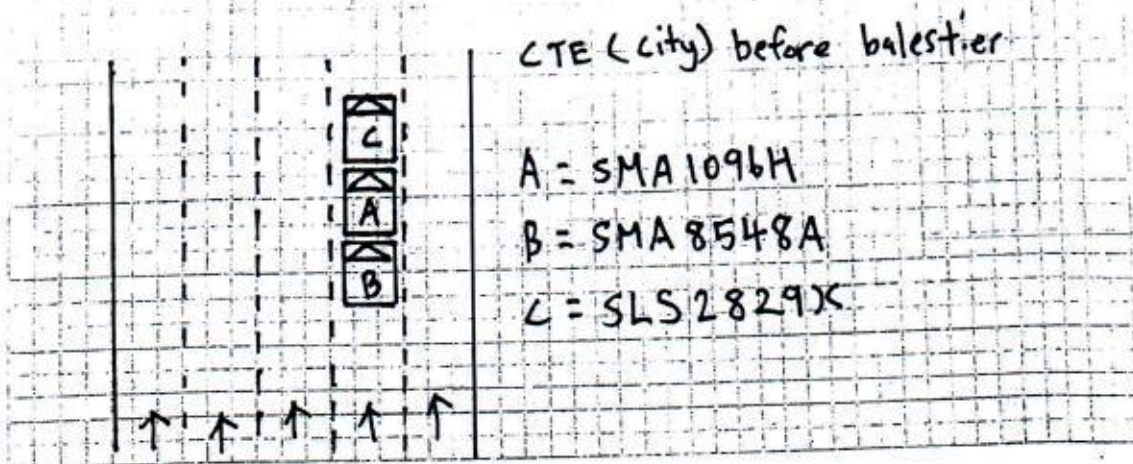 CTE (city) before balestier
C
A
B
A = SMA1096H
B = SMA8548A
C = SLS2829X